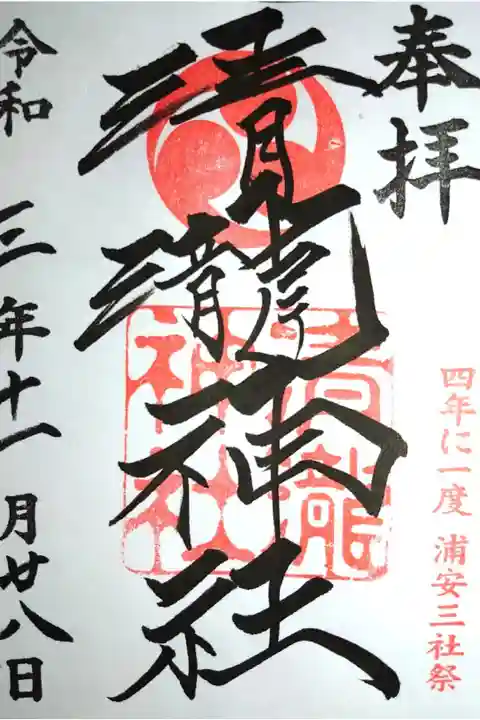 奉拝
清瀧神社
清瀧
神社
四年に一度 浦安三社祭
令和三年十一月廿八日